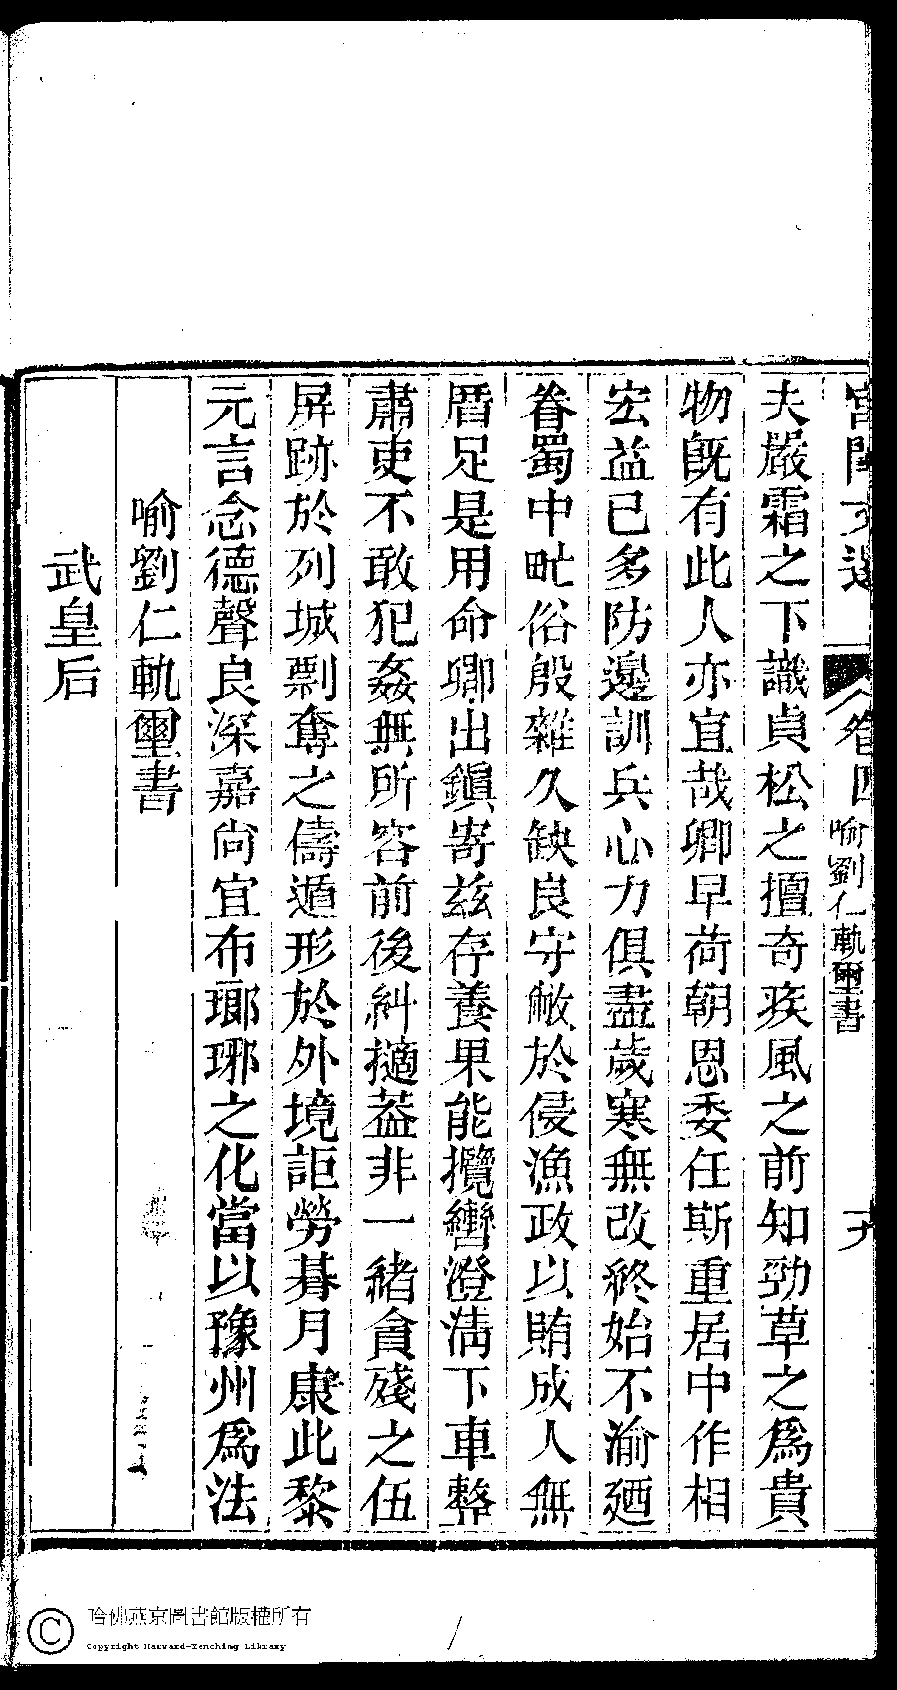 宮閨文選 卷四 喻劉仁軌璽書
夫嚴霜之下識貞松之擅奇疾風之前知勁草之爲貴
物旣有此人亦宜哉卿早荷朝恩委任斯重居中作相
宏益已多防邊訓兵心力俱盡歲寒無改終始不渝廼
眷蜀中甿俗殷雜久缺良守敝於侵漁政以賄成人無
厝足是用命卿出鎭寄兹存養果能攬轡澄淸下車整
肅吏不敢犯姦無所容前後糾擿葢非一緒貪殘之伍
屏跡於列城剽奪之儔遁形於外境詎勞朞月康此黎
元言念德聲良深嘉尙宜布瑯琊之化當以豫州爲法
喻劉仁軌璽書
武皇后
哈佛燕京圖書館版權所有
Copyright Harvard-Yenching Library